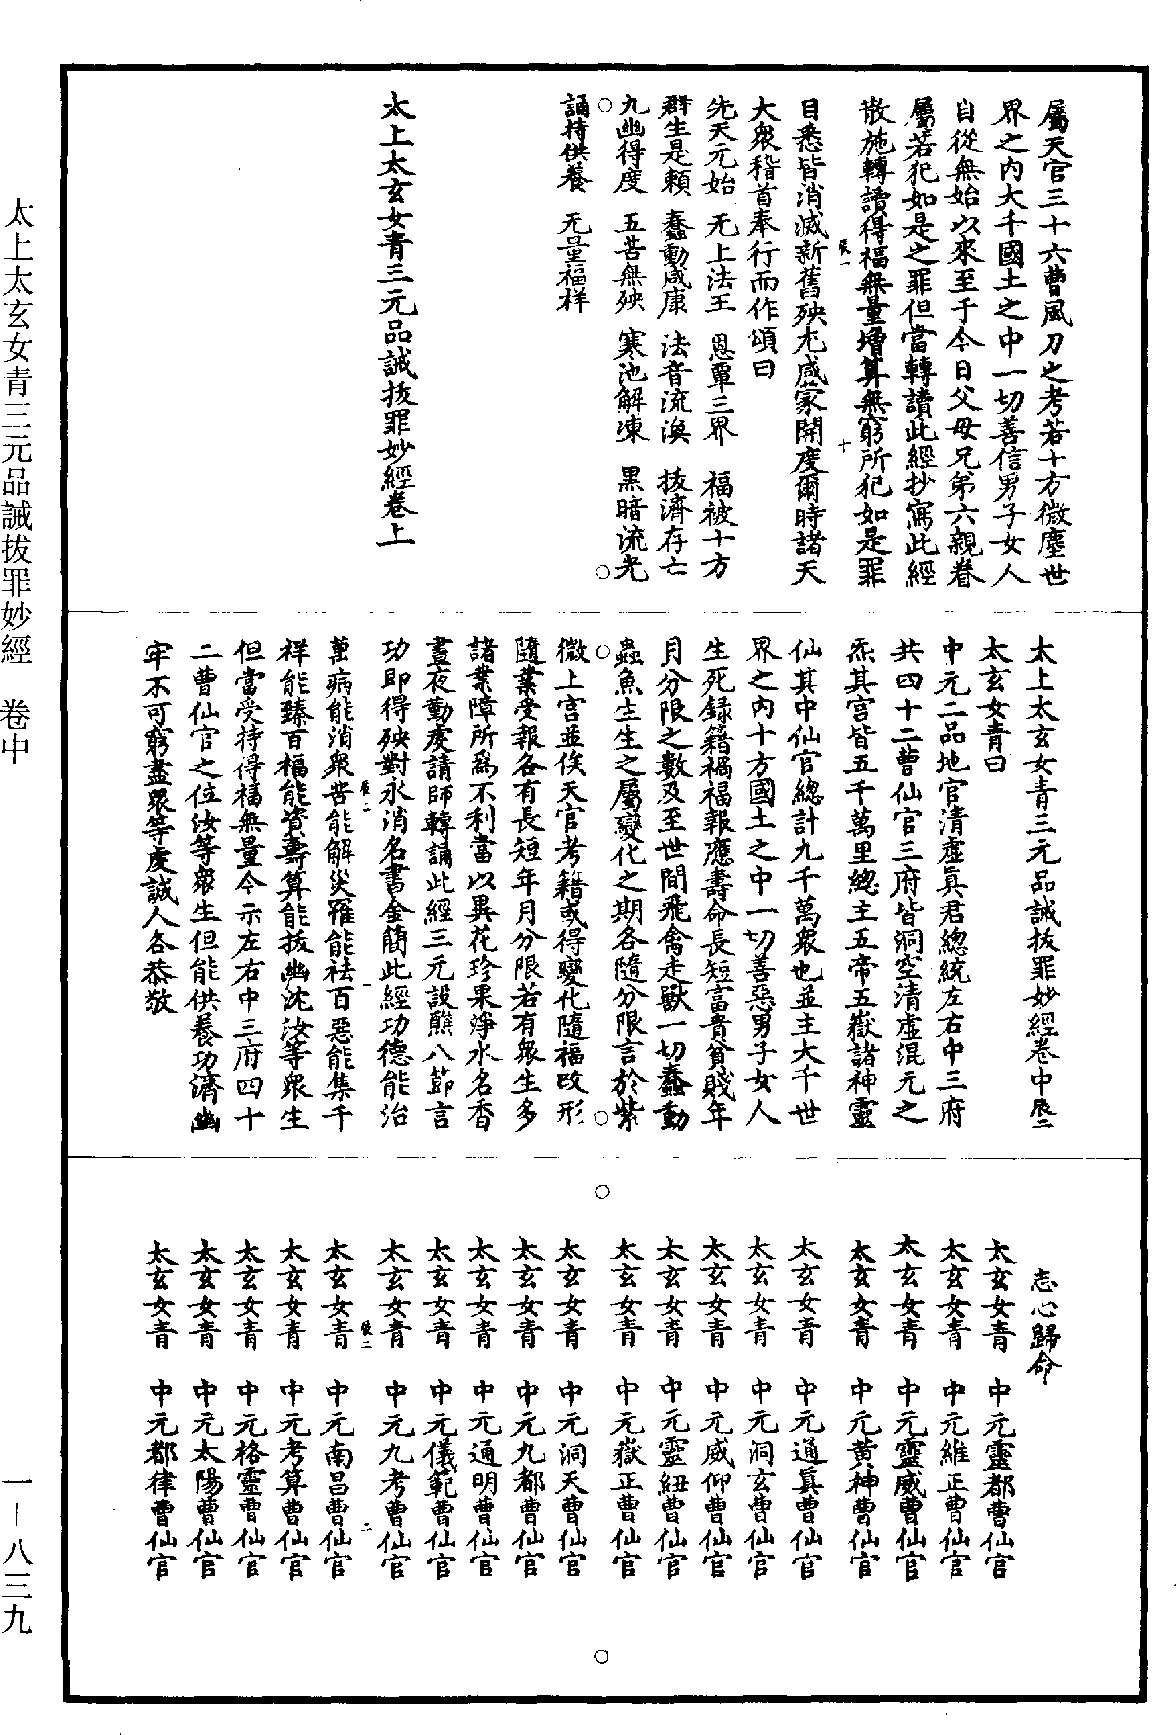 屬天官三十六曹風刀之考若十方微塵世
界之内大千國土之中一切善信男子女人
自從無始以來至于今日父母兄弟六親眷
屬若犯如是之罪但當轉讀此經抄寫此經
散施轉讀得福無量增算無窮所犯如是罪
辰一 十
目悉皆消滅新舊殃尤咸蒙開度爾時諸天
大衆稽首奉行而作頌曰
先天元始 无上法王 恩覃三界 福被十方
群生是賴 蠢動咸康 法音流渙 拔濟存亡
九幽得度 五苦無殃 寒池解凍 黑暗流光
誦持供養 无量福祥
太上太玄女青三元品誡拔罪妙經卷上
太上太玄女青三元品誡拔罪妙經卷中 辰二
太玄女青曰
中元二品地官清虛真君總統左右中三府
共四十二曹仙官三府皆洞空清虛混元之
炁其宮皆五千萬里總主五帝五嶽諸神靈
仙其中仙官總計九千萬衆也並主大千世
界之内十方國土之中一切善惡男子女人
生死錄籍禍福報應壽命長短富貴貧賤年
月分限之數及至世間飛禽走獸一切蠢動
蟲魚生生之屬變化之期各隨分限言於紫
微上宮並俟天官考籍或得變化隨福改形
隨業受報各有長短年月分限若有衆生多
諸業障所爲不利當以異花珍果淨水名香
晝夜勤虔請師轉誦此經三元設醮八節言
功即得殃對永消名書金簡此經功德能治
辰二 一
萬病能消衆苦能解災羅能祛百惡能集千
祥能臻百福能資壽算能拔幽沈汝等衆生
但當受持得福無量今示左右中三府四十
二曹仙官之位汝等衆生但能供養功濟幽
牢不可窮盡衆等虔誠人各恭敬
志心歸命
太玄女青 中元靈都曹仙官
太玄女青 中元維正曹仙官
太玄女青 中元靈威曹仙官
太玄女青 中元黃神曹仙官
太玄女青 中元通真曹仙官
太玄女青 中元洞玄曹仙官
太玄女青 中元威仰曹仙官
太玄女青 中元靈紐曹仙官
太玄女青 中元嶽正曹仙官
太玄女青 中元洞天曹仙官
太玄女青 中元九都曹仙官
太玄女青 中元通明曹仙官
太玄女青 中元儀範曹仙官
太玄女青 中元九考曹仙官
辰二 二
太玄女青 中元南昌曹仙官
太玄女青 中元考算曹仙官
太玄女青 中元格靈曹仙官
太玄女青 中元太陽曹仙官
太玄女青 中元都律曹仙官
太上太玄女青三元品誡拔罪妙經 卷中
一－八三九